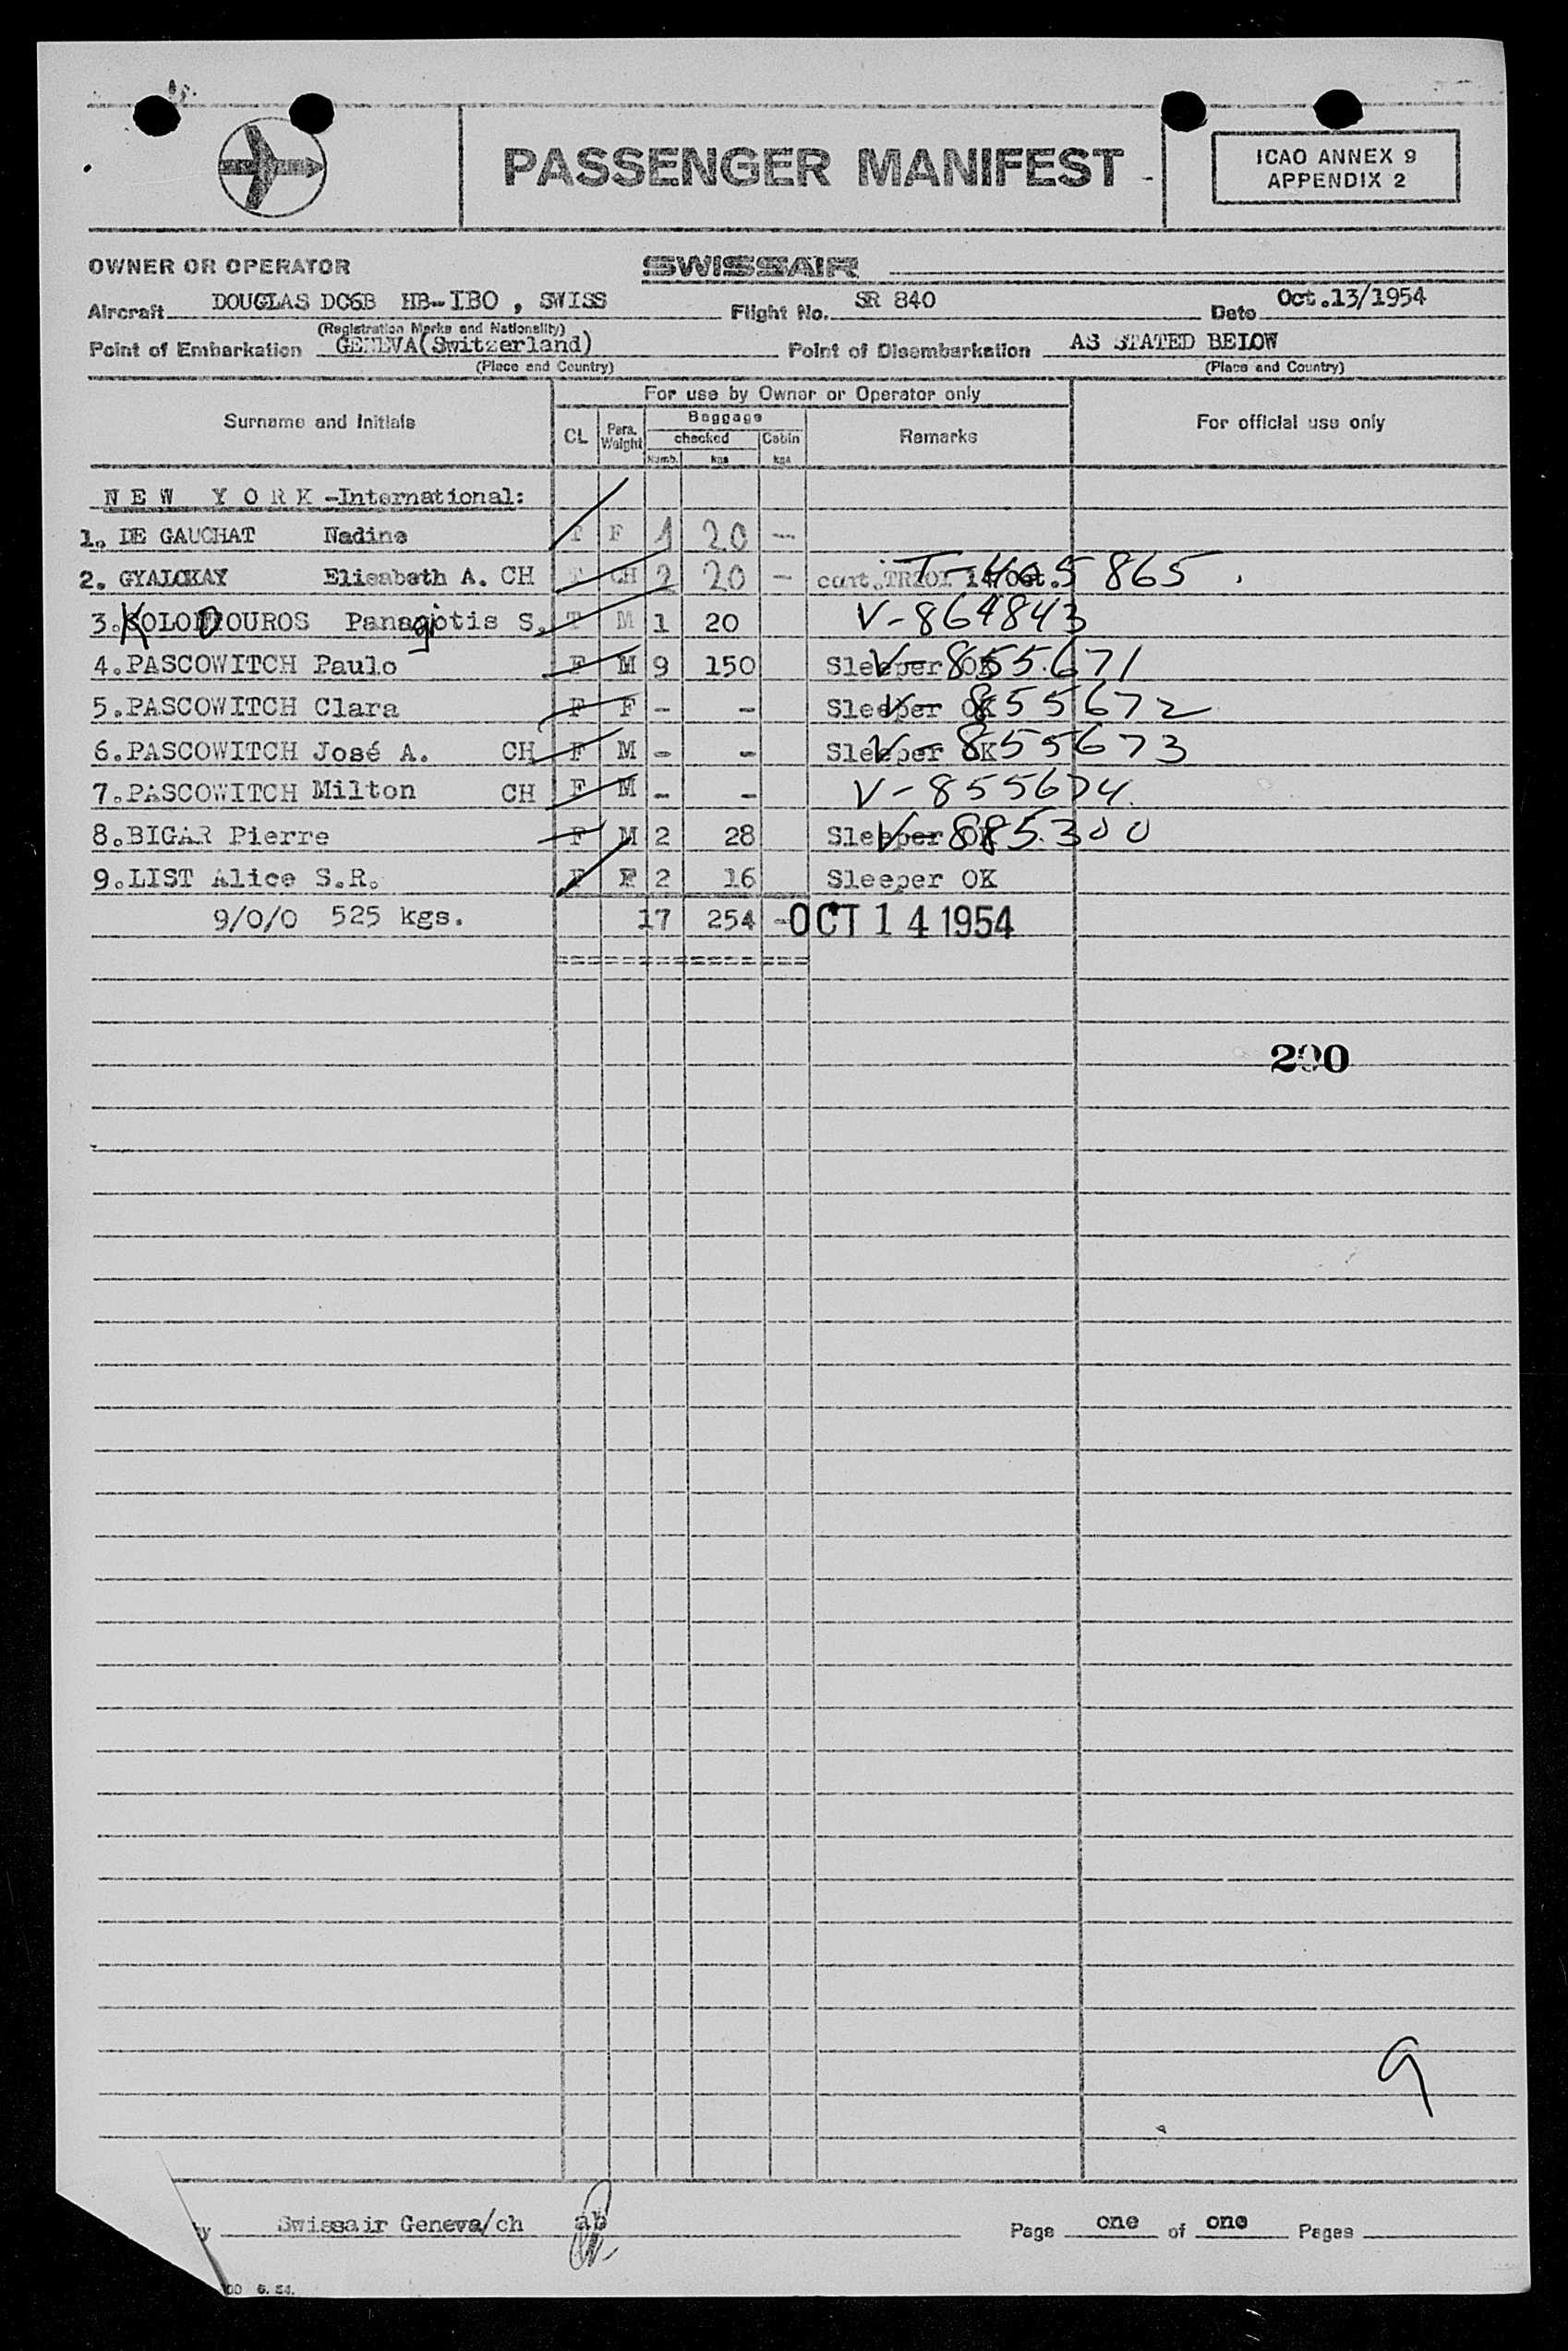 PASSENGER MANIFEST
ICAO ANNEX 9
APPENDIX 2
OWNER OR OPERATOR SWISSAIR
Aircraft DOUGLAS DC6B HB-IBO , SWISS Flight No. SR 840 Date Oct.13/1954
(Registration Marks and Nationality)
Point of Embarkation GENEVA(Switzerland) Point of Disembarkation AS STATED BELOW
(Place and Country) (Place and Country)
Surname and Initials For use by Owner or Operator only For official use only
CL Pers. Weight Baggage Remarks
checked Cabin
Numb. kgs kgs
NEW YORK -International:
1. DE GAUCHAT Nadine T F 1 20 -
2. Elisabeth A. CH T CH 2 20 - T-405865
3. Panagiotis S. T M 1 20 V-864843
4.PASCOWITCH Paulo F M 9 150 Sleeper OK V-855671
5.PASCOWITCH Clara F F - - Sleeper OK V-855672
6.PASCOWITCH José A. CH F M - - Sleeper OK V-855673
7.PASCOWITCH Milton CH F M - - V-855674
8.BIGAR Pierre F M 2 28 Sleeper OK V-885300
9.LIST Alice S.R. F F 2 16 Sleeper OK
9/0/0 525 kgs. 17 254 - OCT 14 1954
200
9
Swissair Geneva/ch ab Page one of one Pages
6. 54.